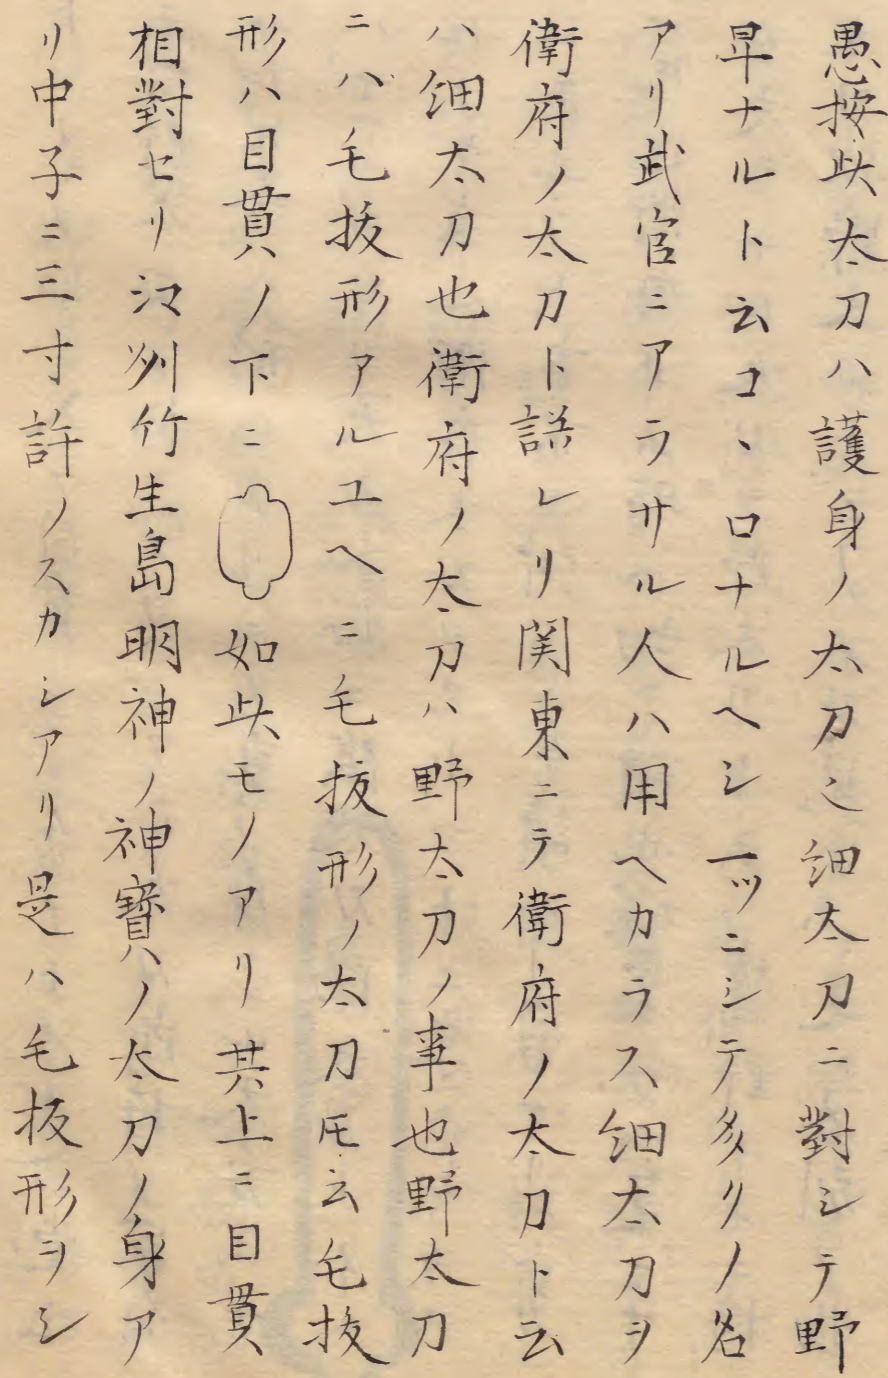 愚按此太刀ハ護身ノ太刀也細太刀ニ對シテ野
卑ナルト云コヽロナルヘシ一ツニシテ多クノ名
アリ武官ニアラサル人ハ用ヘカラス細太刀ヲ
衛府ノ太刀ト誤レリ関東ニテ衛府ノ太刀ト云
ハ細太刀也衛府ノ太刀ハ野太刀ノ事也野太刀
ニハ毛抜形アルユヘニ毛抜形ノ太刀㪽云毛抜
形ハ目貫ノ下ニ如此モノアリ其上ニ目貫
相對セリ江州竹生島明神ノ神寳ノ太刀ノ身ア
リ中子ニ三寸許ノスカシアリ是ハ毛抜形ヲシ